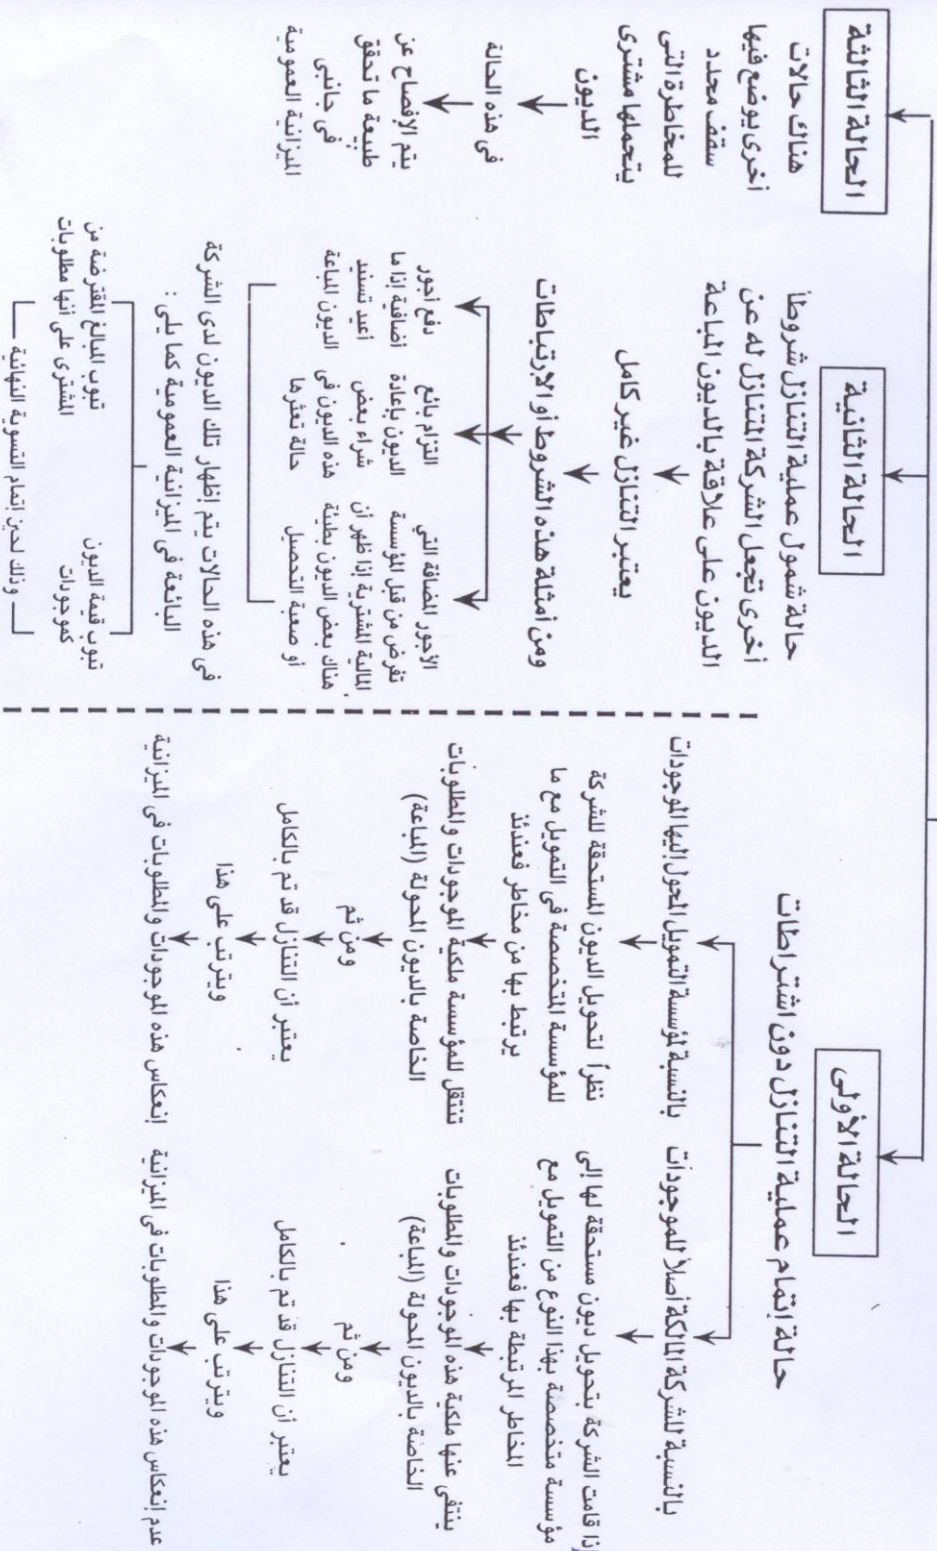 الحالة الأولى
حالة إتمام عملية التنازل دون اشتراطات
بالنسبة للشركة المالكة أصلاً للموجودات
إذا قامت الشركة بتحويل ديون مستحقة لها إلى
مؤسسة متخصصة بهذا النوع من التمويل مع
المخاطر المرتبطة بها فعندئذ
ينتفي عنها ملكية هذه الموجودات والمطلوبات
الخاصة بالديون المحولة (المباعة)
ومن ثم
يعتبر أن التنازل قد تم بالكامل
ويترتب على هذا
عدم إنعكاس هذه الموجودات والمطلوبات في الميزانية
بالنسبة لمؤسسة التمويل المحول إليها الموجودات
نظراً لتحويل الديون المستحقة للشركة
للمؤسسة المتخصصة في التمويل مع ما
يرتبط بها من مخاطر فعندئذ
تنتقل للمؤسسة ملكية الموجودات والمطلوبات
الخاصة بالديون المحولة (المباعة)
ومن ثم
يعتبر أن التنازل قد تم بالكامل
ويترتب على هذا
إنعكاس هذه الموجودات والمطلوبات في الميزانية
الحالة الثانية
حالة شمول عملية التنازل شروطاً
أخرى تجعل الشركة المتنازل له عن
الديون على علاقة بالديون المباعة
يعتبر التنازل غير كامل
ومن أمثلة هذه الشروط أو الارتباطات
الأجور المضافة التي
تفرض من قبل المؤسسة
المالية المشترية إذا ظهر أن
هناك بعض الديون بطيئة
أو صعبة التحصيل
التزام بائع
الديون بإعادة
شراء بعض
هذه الديون في
حالة تعثرها
دفع أجور
اضافية إذا ما
أعيد تسديد
الديون المباعة
في هذه الحالات يتم إظهار تلك الديون لدى الشركة
البائعة في الميزانية العمومية كما يلي :
تبوب قيمة الديون
كموجودات
تبوب المبالغ المقترضة من
المشترى على أنها مطلوبات
وذلك لحين إتمام التسوية النهائية
الحالة الثالثة
هناك حالات
أخرى يوضع فيها
سقف محدد
للمخاطرة التي
يتحملها مشترى
الديون
في هذه الحالة
يتم الافصاح عن
طبيعة ما تحقق
في جانبي
الميزانية العمومية